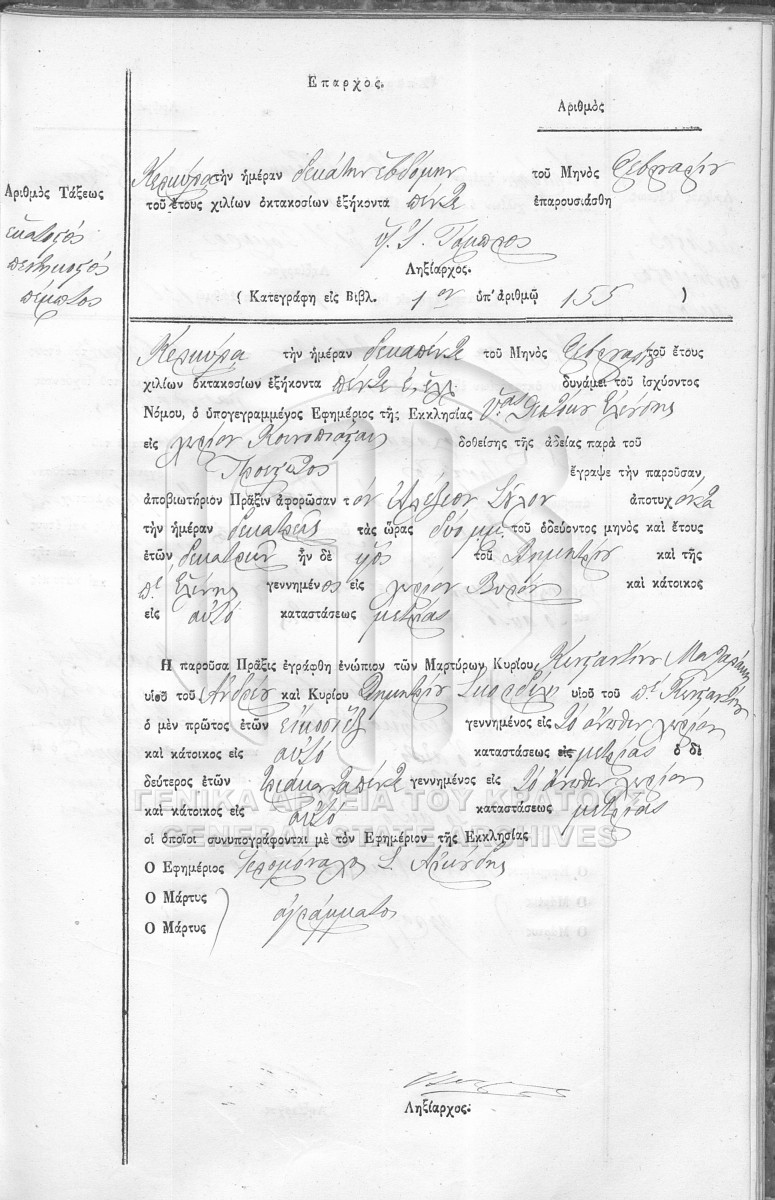 Επαρχος.
Αριθμὸς
Κερκύρα τὴν ἡμέραν δεκάτην ἑβδόμην τοῦ Μηνὸς Φεβρουαρίου
Αριθμὸς Τάξεως
τοῦ ἔτους χιλίων ὀκτακοσίων ἑξήκοντα πέντε ἐπαρουσιάσθη
ἑκατοστὸς
πεντηκοστὸς
πέμπτος
Ληξίαρχος.
( Κατεγράφη εἰς Βιβλ. 1ον ὑπ' ἀριθμῷ 155 )
Κερκύρα τὴν ἡμέραν δεκαπέντε τοῦ Μηνὸς Φεβρουαρίου τοῦ ἔτους
χιλίων ὀκτακοσίων ἑξήκοντα πέντε δυνάμει τοῦ ἰσχύοντος
Νόμου, ὁ ὑπογεγραμμένος Εφημέριος τῆς Εκκλησίας
εἰς χωρίον δοθείσης τῆς ἀδείας παρὰ τοῦ
ἔγραψε τὴν παροῦσαν
ἀποβιωτήριον Πρᾶξιν ἀφορῶσαν τὸν Ἀλέξιον ἀποτυχόντα
τὴν ἡμέραν δεκατρεῖς τὰς ὥρας δύο μμ. τοῦ ὁδεύοντος μηνὸς καὶ ἔτους
ἐτῶν δεκατριῶν ἦν δὲ υἱὸς τοῦ Δημητρίου καὶ τῆς
πτ Ἑλένης γεννημένος εἰς χωρίον καὶ κάτοικος
εἰς αὐτό καταστάσεως μετρίας
Η παροῦσα Πρᾶξις ἐγράφθη ἐνώπιον τῶν Μαρτύρων, Κυρίου, Κωνσταντίνου
υἱοῦ τοῦ Ἀνδρέου καὶ Κυρίου Δημητρίου υἱοῦ τοῦ πτ Κωνσταντίνου
ὁ μὲν πρῶτος ἐτῶν εἰκοσιέξ γεννημένος εἰς τὸ ἄνωθεν χωρίον
καὶ κάτοικος εἰς αὐτό καταστάσεως εἰς μετρίας ὁ δὲ
δεύτερος ἐτῶν τριάκοντα πέντε γεννημένος εἰς τὸ ἄνωθεν χωρίον
καὶ κάτοικος εἰς αὐτό καταστάσεως μετρίας
οἱ ὁποῖοι συνυπογράφονται μὲ τὸν Εφημέριον τῆς Εκκλησίας
Ο Εφημέριος Ἱερομόναχος
Ο Μάρτυς
ἀγράμματοι
Ο Μάρτυς
Ληξίαρχος:
ΓΕΝΙΚΑ ΑΡΧΕΙΑ ΤΟΥ ΚΡΑΤΟΥΣ
GENERAL STATE ARCHIVES